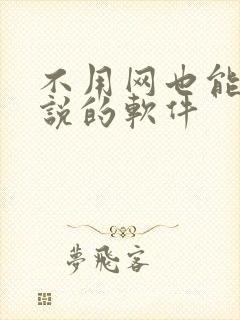 不用网也能
說的軟件
夢飛客